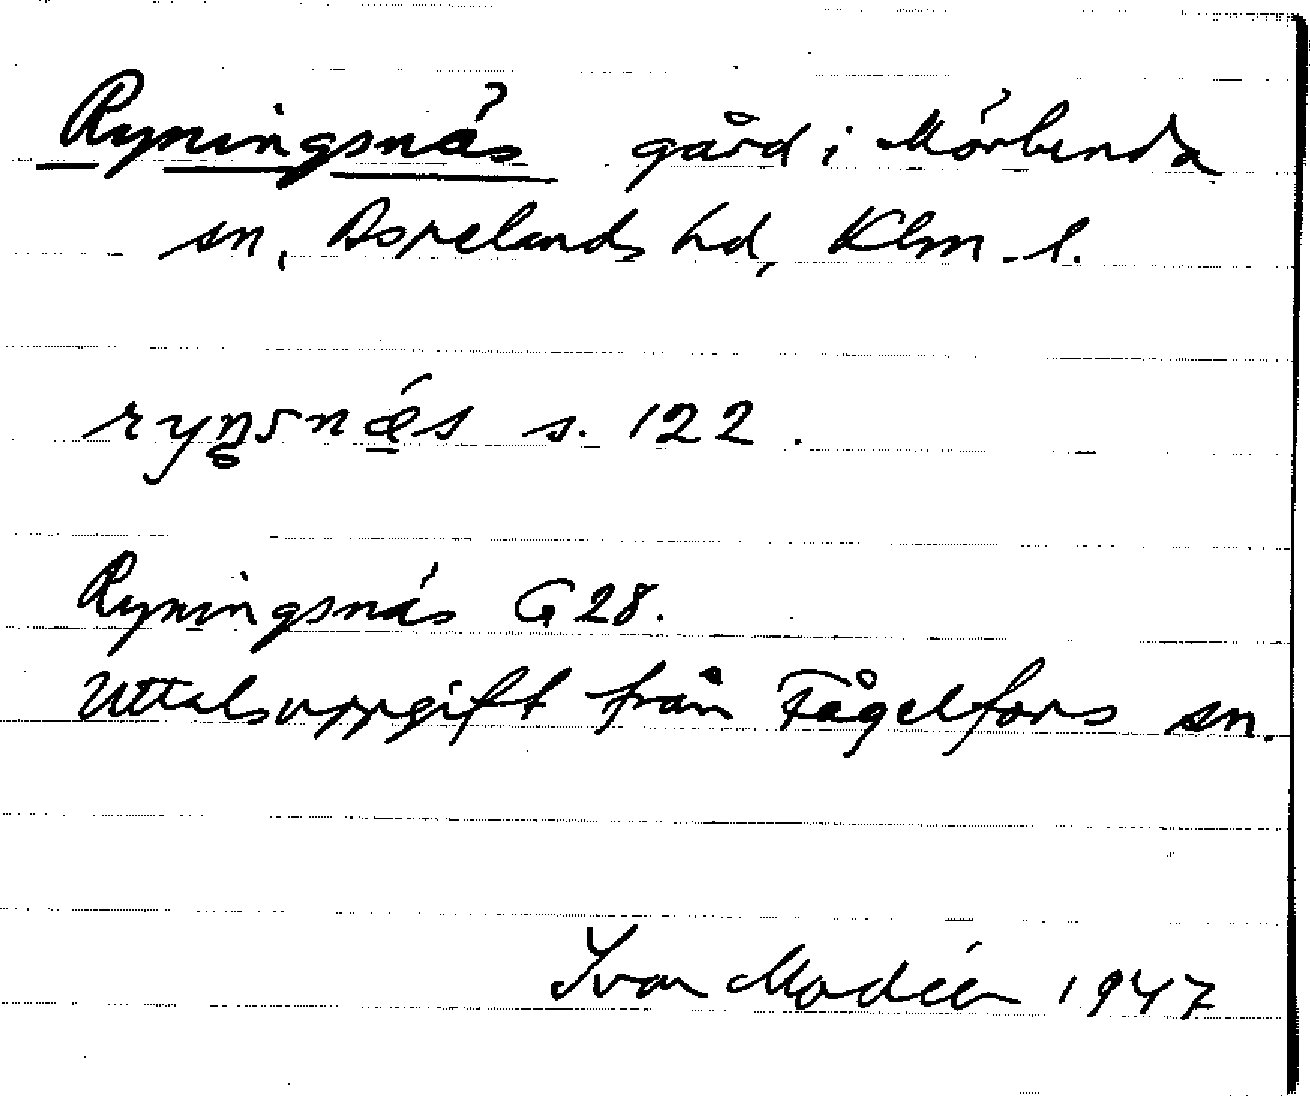 Ryningsnäs gård i Mörlunda
sn, Aspelands hd, Klm. l.
s. 122.
Ryningsnäs G 28.
Uttalsuppgift från Fågelfors sn.
Ivar Modéer 1947